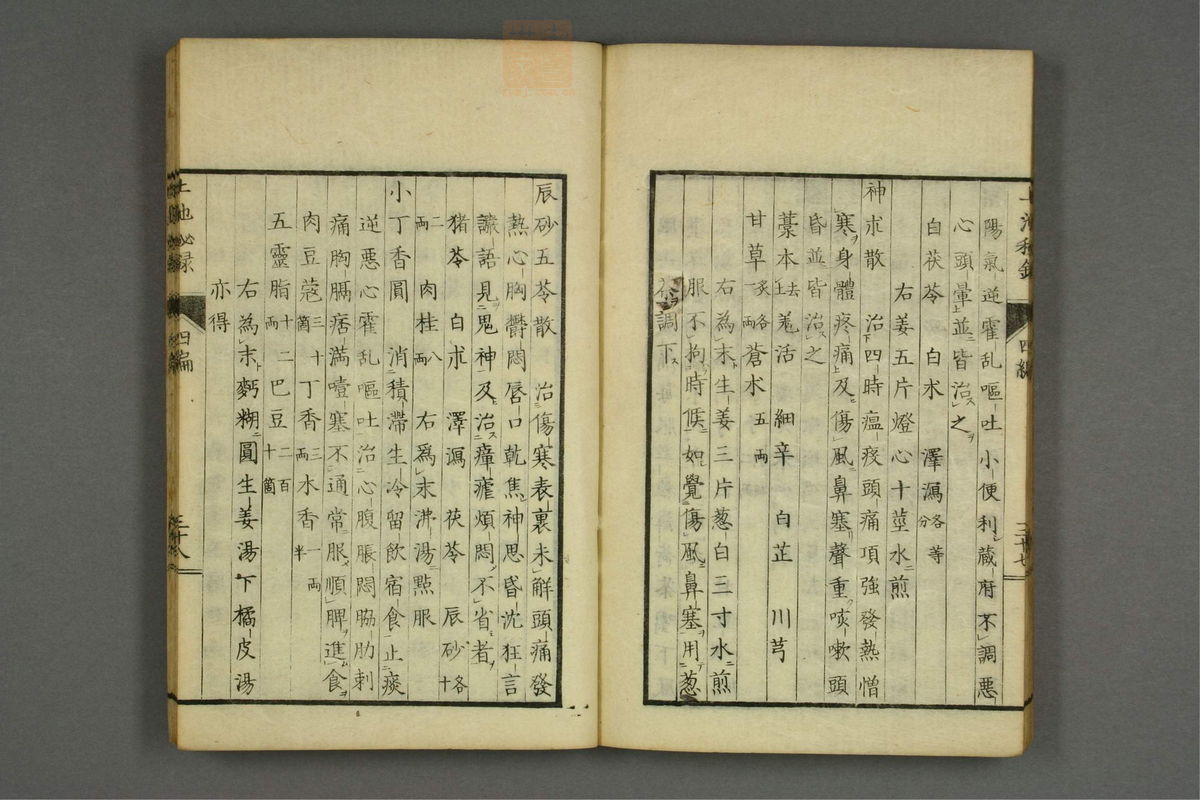 陽氣逆霍乱嘔吐小便利蔵府不調悪
心頭暈並皆治之
白茯苓　白朮　澤瀉各等分
右姜五片燈心十莖水煎
神朮散　治四時瘟疫頭痛項強發熱憎
寒身體疼痛及傷風鼻塞聲重咳嗽頭
昏並皆治之
藁本去芷　羗活　細辛　白芷　川芎
甘草炙各一両　蒼朮五両
右為末生姜三片葱白三寸水煎
服不拘時候如覺傷風鼻塞用葱
茶調下
四編
三十七
辰砂五苓散　治傷寒表裏未解頭痛發
熱心胸欝悶唇口乾焦神思昏沈狂言
譫語見鬼神及治瘴瘧煩悶不省者
猪苓　白朮　澤瀉　茯苓　辰砂各十
二両　肉桂八両　右爲末沸湯點服
小丁香圓　消積滞生冷留飲宿食止痰
逆悪心霍乱嘔吐治心腹脹悶脇肋刺
痛胸膈痞満噎塞不通常服順脾進食
肉豆蔻三十箇　丁香三両　木香一両半
五靈脂十二両　巴豆二百十箇
右為末麪糊圓生姜湯下橘皮湯
亦得
四編
三十八